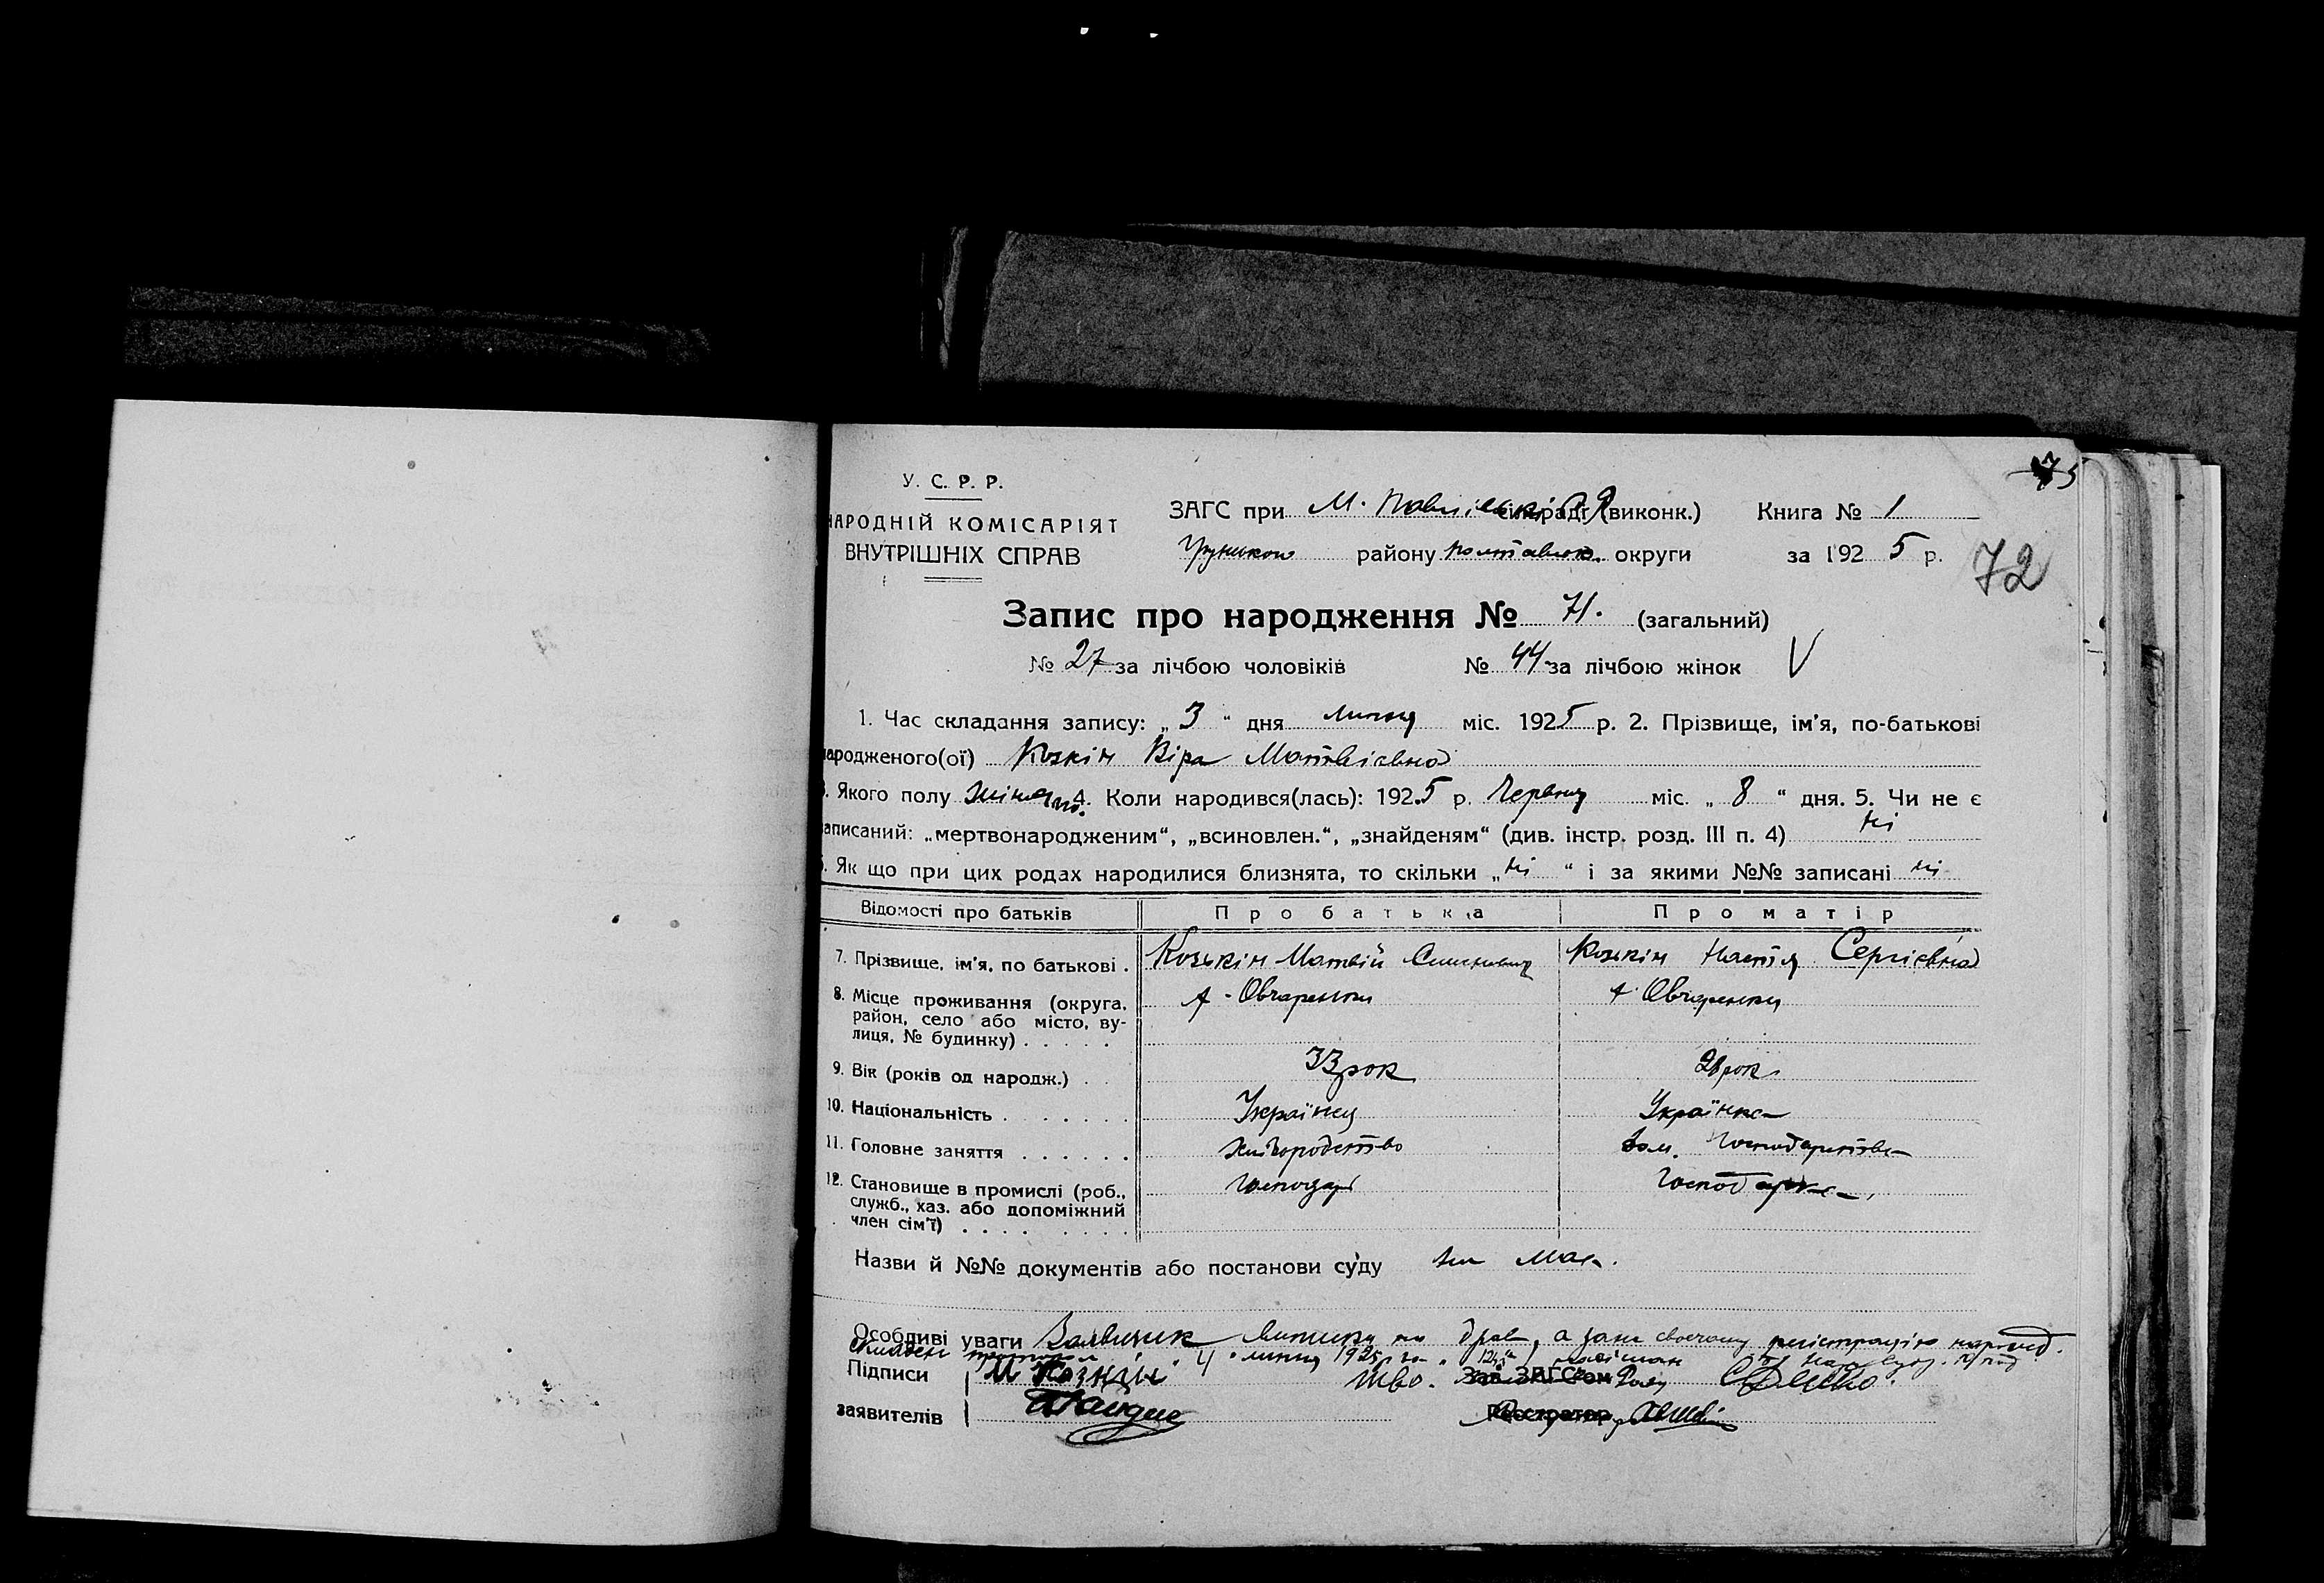 75
У. С. Р. Р.
НАРОДНІЙ КОМІСАРІЯТ
ВНУТРІШНІХ СПРАВ
ЗАГС при М. Павлівські (виконк.) Книга № 1
району округи за 1925 р.
72
Запис про народження № 71. (загальний)
№ 27 за лічбою чоловіків № 44 за лічбою жінок V
1. Час складання запису: „ 3 “ дня липня міс. 1925 р. 2. Прізвище, ім'я, по-батькові
народженого(ої) Козкін Віра Матвієвна
. Якого полу 4. Коли народився(лась): 1925 р. Червня міс. „ 8 “ дня. 5. Чи не є
записаний: „мертвонародженим“, „всиновлен.“, „знайденям“ (див. інстр. розд. III п. 4) ні
. Як що при цих родах народилися близнята, то скільки „ ні “ і за якими №№ записані ні
Відомості про батьків Про батька Про матір
7. Прізвище, ім'я, по батькові . Козькін Матвій Козкін Настя Сергієвна
8. Місце проживання (округа, район, село або місто, вулиця, № будинку) . . . . . х. Овчаренки х. Овчаренки
9. Вік (років од народж.) . . 33 рок 28 рок
10. Національність . . . . . . Українец Українка
11. Головне заняття . . . . . . хліборобство дом. господарства
12. Становище в промислі (роб., служб., хаз. або допоміжний член сім'ї) . . . . . . . . господар господарка
Назви й №№ документів або постанови суду
Особливі уваги а за не своєчасну регістрацію народ.
складен протокол 4 липня 1925 р. за
Підписи М Козкін Зав. ЗАГС'ом
заявителів Реєстратор